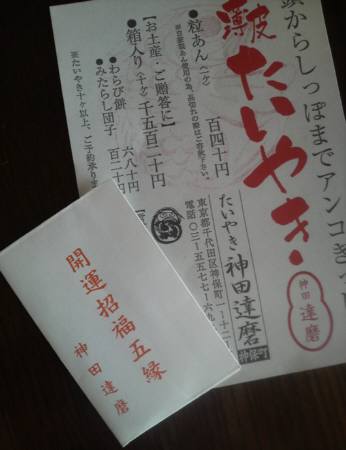 頭からしっぽまでアンコぎっ
薄皮
たいやき
神田
達磨
●粒あん(一ケ)
百四十円
【お土産・ご贈答に】
●箱入り(十ケ)千五百二十円
●わらび餅
六八十円
●みたらし団子
百二十円
※たいやき十ヶ以上、ご予約承りま
たいやき神田達磨
神保町
東京都千代田区神保町一-十二-
電話〇三-五五七七-六九
開運招福五縁
神田達磨